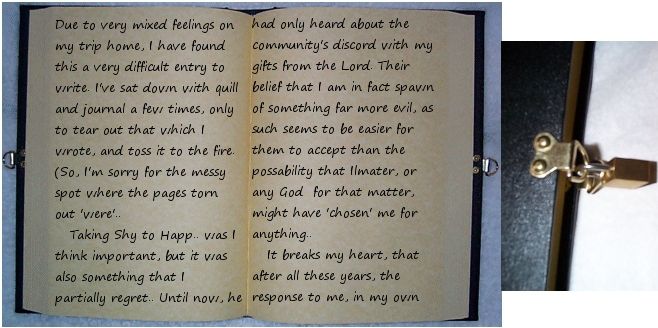 Due to very mixed feelings on
my trip home, I have found
this a very difficult entry to
write. I've sat down with quill
and journal a few times, only
to tear out that which I
wrote, and toss it to the fire.
(So, I'm sorry for the messy
spot where the pages torn
out 'were'..
Taking Shy to Happ.. was I
think important, but it was
also something that I
partially regret.. Until now, he
had only heard about the
community's discord with my
gifts from the Lord. Their
belief that I am in fact spawn
of something far more evil, as
such seems to be easier for
them to accept than the
possability that Ilmater, or
any God for that matter,
might have 'chosen' me for
anything..
It breaks my heart, that
after all these years, the
response to me, in my own